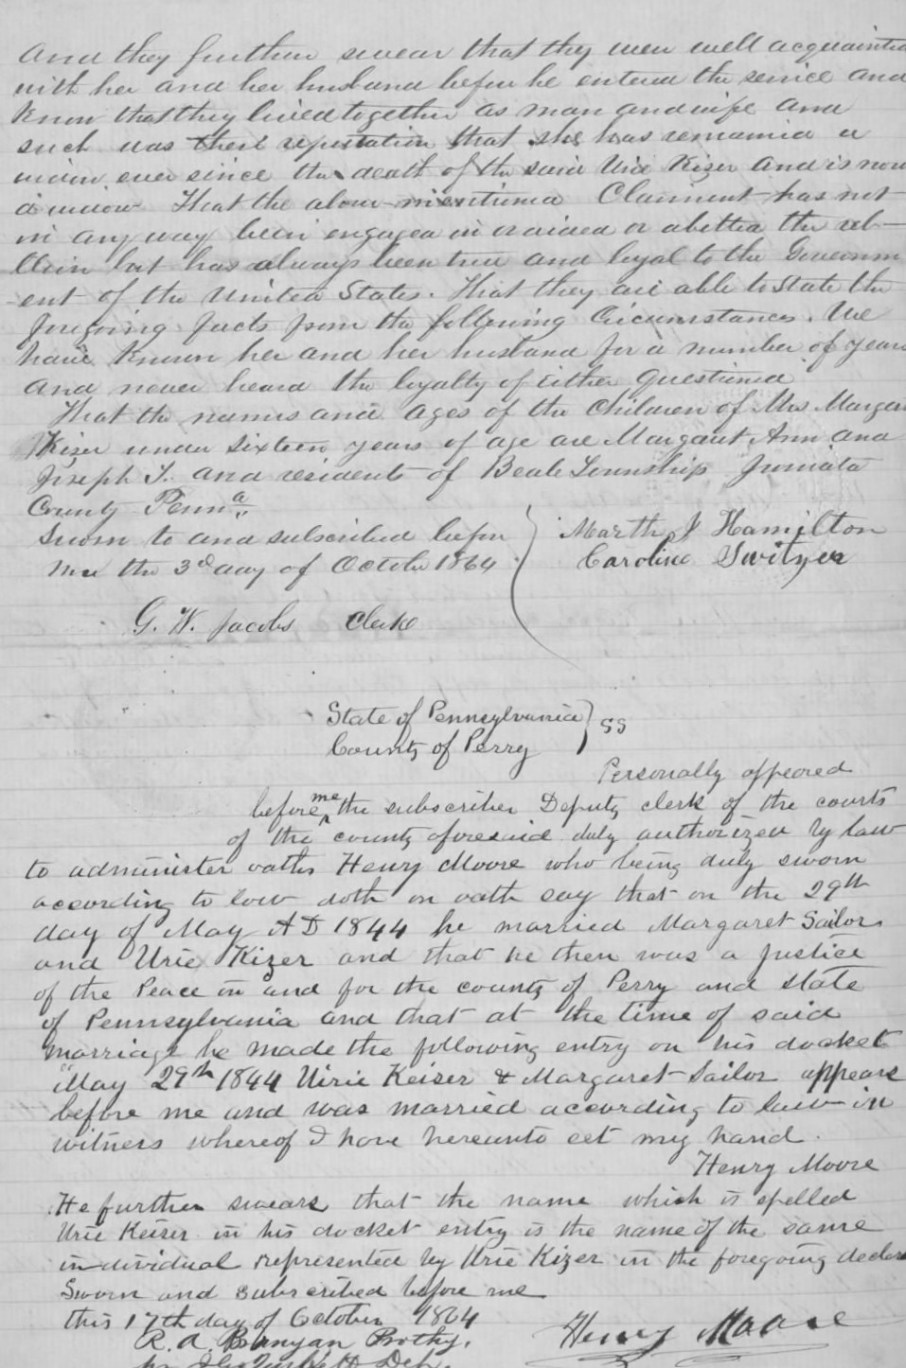 And they further swear that they were well acquainted
with her and her husband before he entered the service and
know that they lived together as man and wife and
such was their reputation that she has remained a
widow ever since the death of the said Urie Kizer and is now
a widow That the above mentioned Claiment has not
in any way been engaged in or aided or abetted the reb-
ellion but has always been true and loyal to the Governm
-ent of the United States. That they are able to state the
foregoing facts from the following Circumstances. We
have known her and her husband for a number of years
and never heard the loyalty of either questioned
That the names and ages of the Children of Mrs Margaret
Kizer under sixteen years of age are Margaret Ann and
Joseph T. and residents of Beale Township Juniata
County Penna.
Sworn to and subscribed before
me the 3d day of October 1864
Martha J Hamilton
Caroline Switzer
G. W. Jacobs Clerk
State of Pennsylvania } SS
County of Perry
Personally appeared
before me the subscriber Deputy clerk of the courts
of the county aforesaid duly authorized by law
to administer oaths Henry Moore who being duly sworn
according to law doth on oath say that on the 29th
day of May AD 1844 he married Margaret Sailor
and Urie Kizer and that he then was a Justice
of the Peace in and for the county of Perry and state
of Pennsylvania and that at the time of said
marriage he made the following entry on his docket
"May 29th 1844 Uirie Keiser & Margaret Sailor appears
before me and was married according to law in
witness whereof I have hereunto set my hand.
Henry Moore
He further swears that the name which is spelled
Urie Keiser in his docket entry is the name of the same
individual represented by Urie Kizer in the foregoing declara
Sworn and subscribed before me
this 17th day of October 1864
Henry Moore
R. A. Bunyan Prothy.